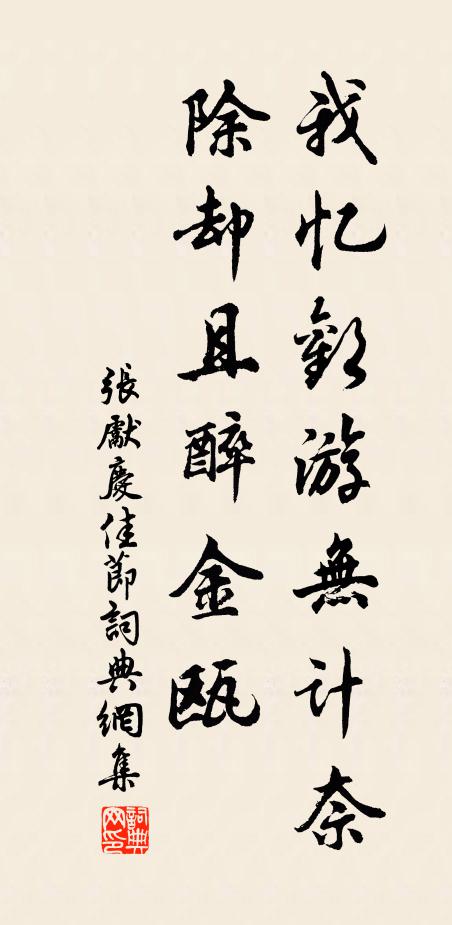 我忆歡游無計奈
除却且醉金瓯
張獻慶佳節詞典網集
詞典网印